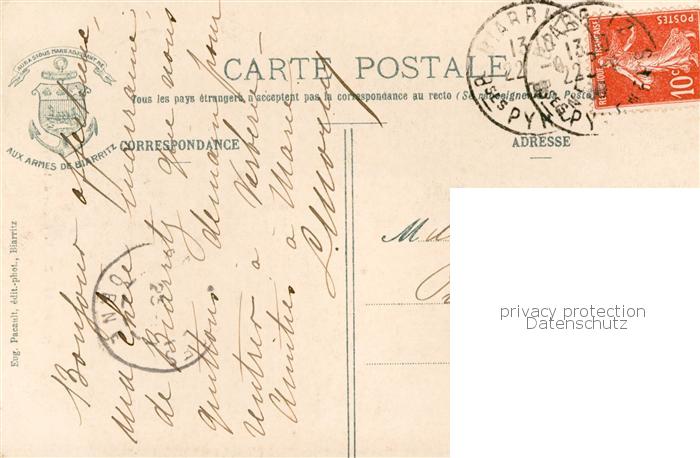 AURA SIDUS MARE ADJUVANT ME
AUX ARMES DE BIARRITZ
CARTE POSTALE
Tous les pays étrangers n'acceptent pas la correspondance au recto (Se renseigner à la Poste)
CORRESPONDANCE
ADRESSE
BIARRITZ
13
22
BSES PYRÉ
13
22
POSTES
10c
Bonjour affectueux
ma chère marraine
de Biarritz que nous
quittons demain pour
rentrer à
Amitiés à Marie
Eug. Pacault, édit.-phot., Biarritz
M
privacy protection
Datenschutz